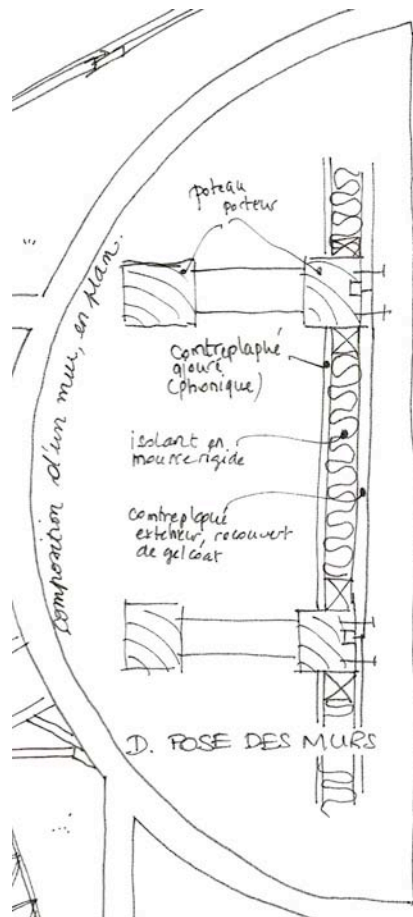 composition d'un mur, en plan.
poteau
porteur
contreplaqué
ajouré
(phonique)
isolant en
mousse rigide
contreplaqué
extérieur, recouvert
de gelcoat
D. POSE DES MURS